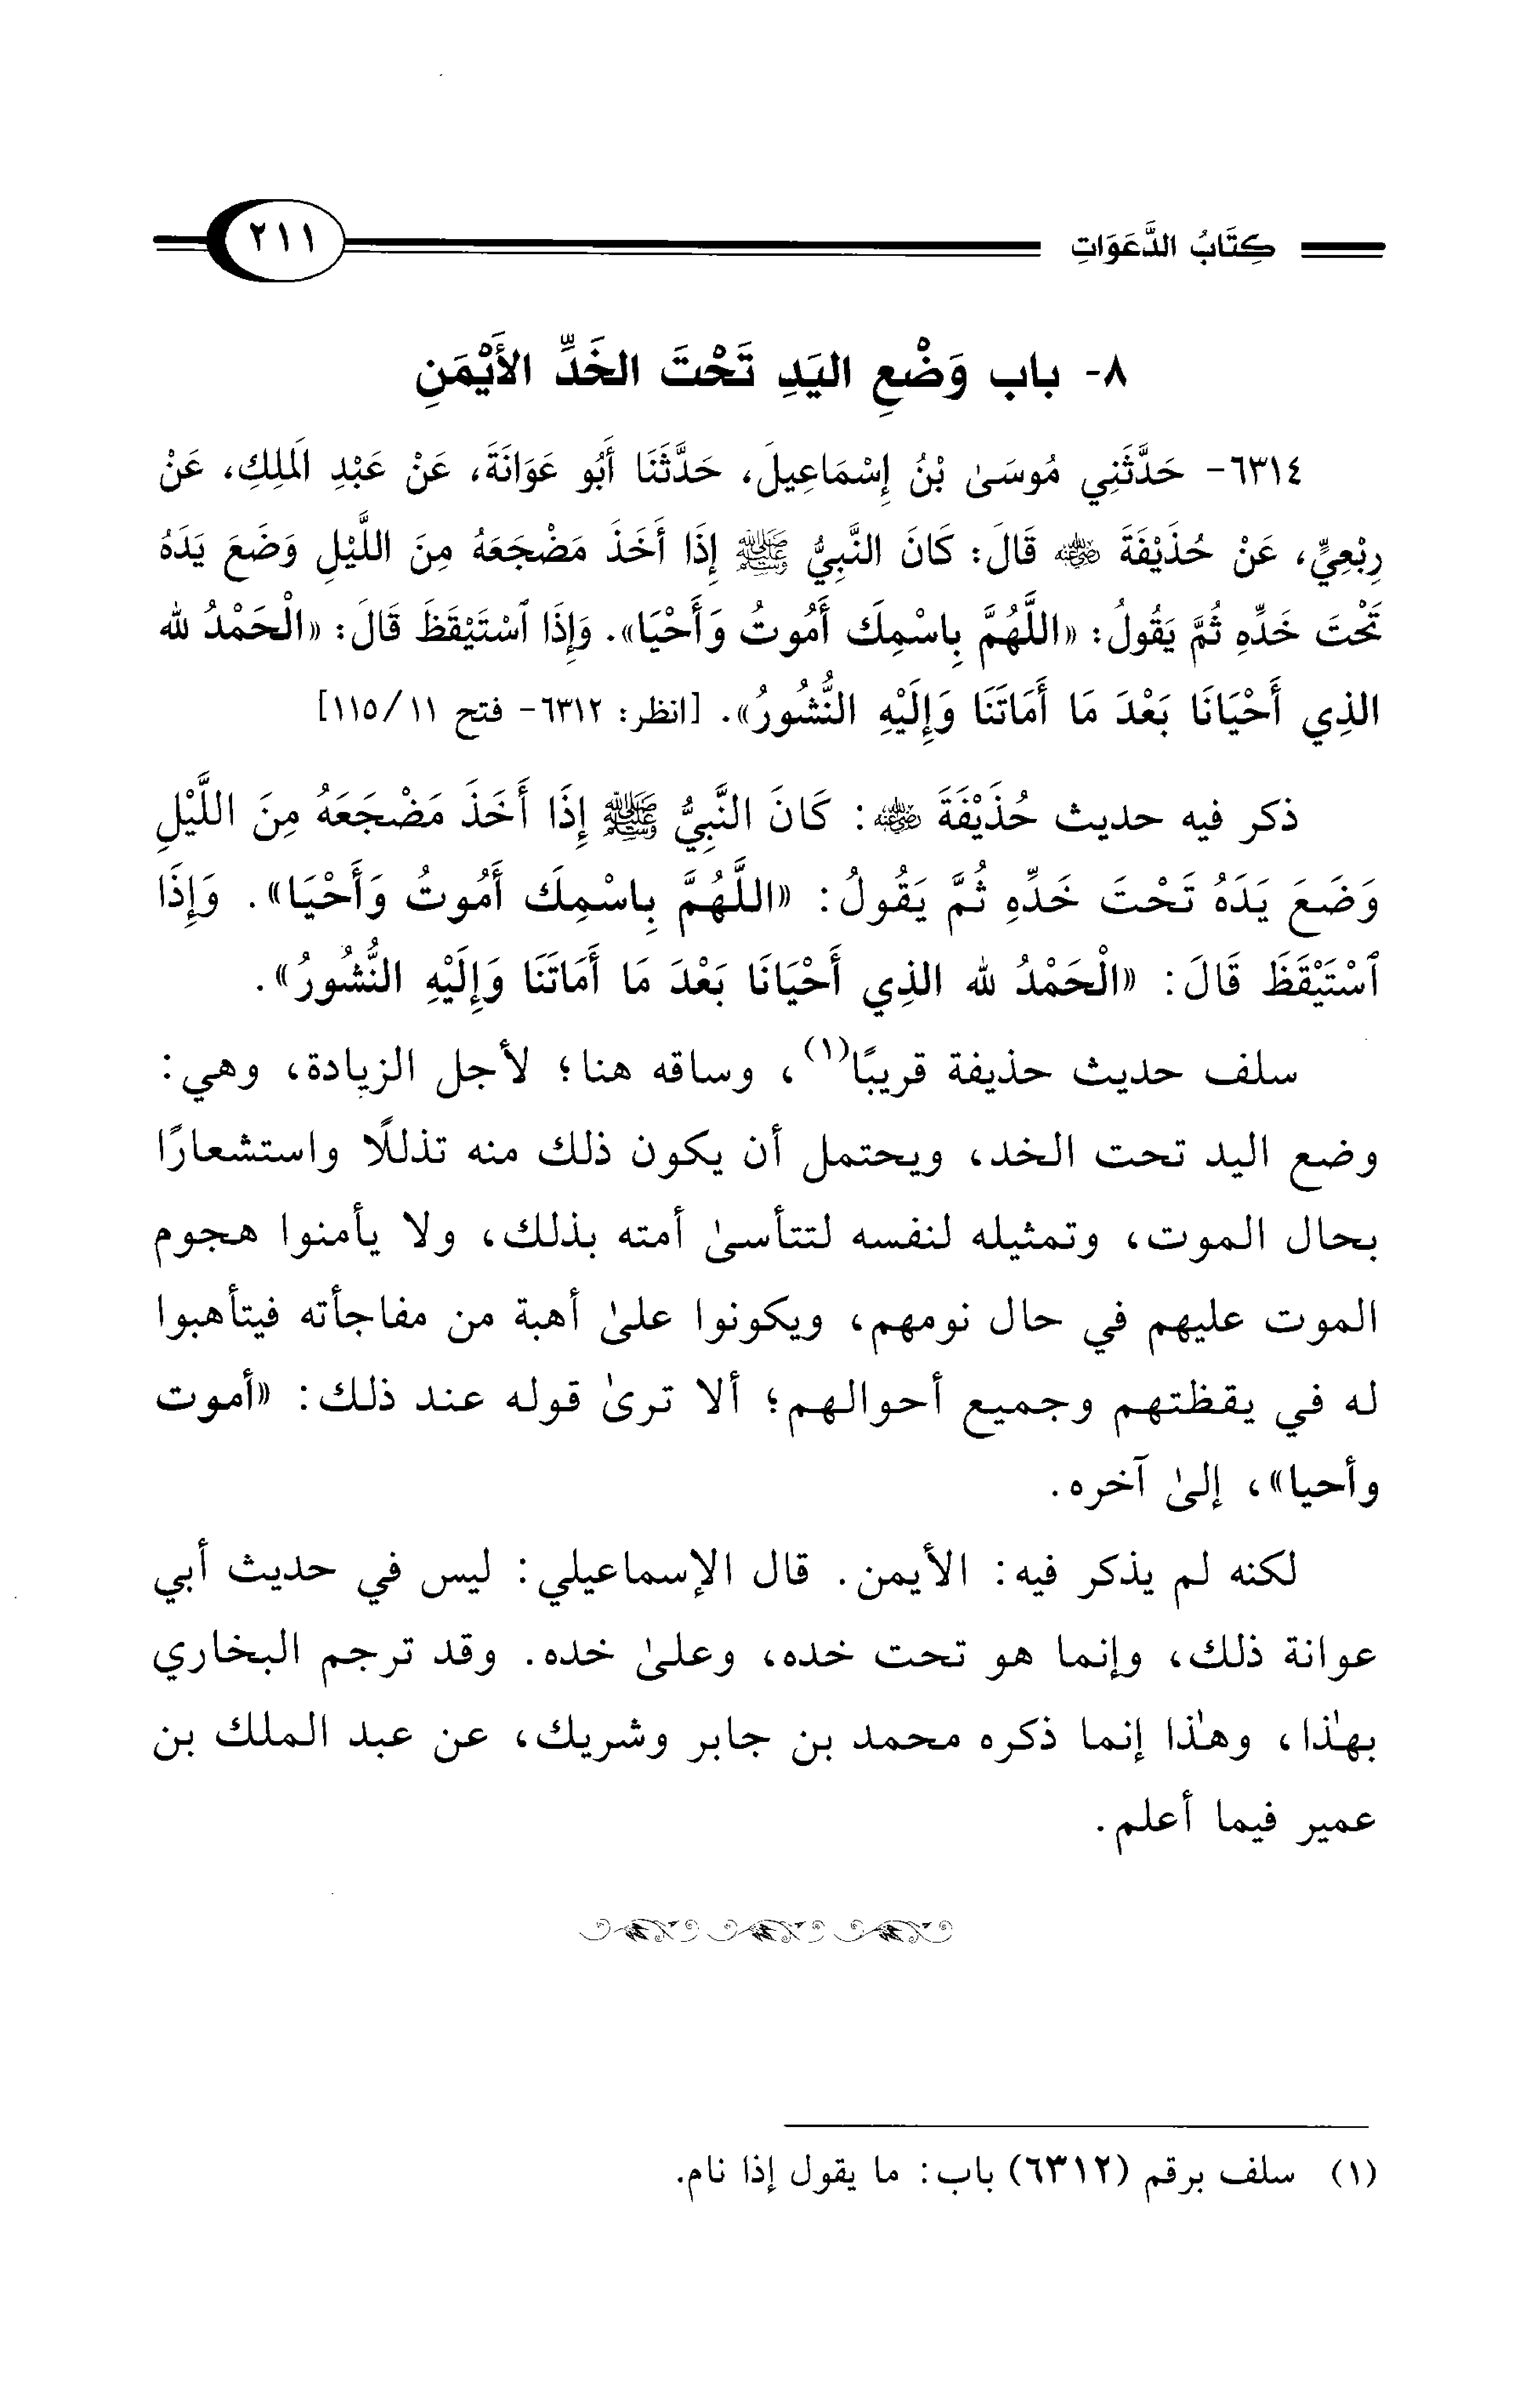 كِتَابُ الدَّعَوَاتِ
٢١١
٨- باب وَضْعِ اليَدِ تَحْتَ الخَدِّ الأَيْمَنِ
٦٣١٤- حَدَّثَنِي مُوسَىٰ بْنُ إِسْمَاعِيلَ، حَدَّثَنَا أَبُو عَوَانَةَ، عَنْ عَبْدِ الَملِكِ، عَنْ
رِبْعِيٍّ، عَنْ حُذَيْفَةَ رضي الله عنه قَالَ: كَانَ النَّبِيُّ ﷺ إِذَا أَخَذَ مَضْجَعَهُ مِنَ اللَّيْلِ وَضَعَ يَدَهُ
تَحْتَ خَدِّهِ ثُمَّ يَقُولُ: «اللَّهُمَّ بِاسْمِكَ أَمُوتُ وَأَحْيَا». وَإِذَا ٱسْتَيْقَظَ قَالَ: «الْحَمْدُ لله
الذِي أَحْيَانَا بَعْدَ مَا أَمَاتَنَا وَإِلَيْهِ النُّشُورُ». [انظر: ٦٣١٢- فتح ١١/ ١١٥]
ذكر فيه حديث حُذَيْفَةَ رضي الله عنه: كَانَ النَّبِيُّ ﷺ إِذَا أَخَذَ مَضْجَعَهُ مِنَ اللَّيْلِ
وَضَعَ يَدَهُ تَحْتَ خَدِّهِ ثُمَّ يَقُولُ: «اللَّهُمَّ بِاسْمِكَ أَمُوتُ وَأَحْيَا». وَإِذَا
ٱسْتَيْقَظَ قَالَ: «الْحَمْدُ لله الذِي أَحْيَانَا بَعْدَ مَا أَمَاتَنَا وَإِلَيْهِ النُّشُورُ».
سلف حديث حذيفة قريبًا(١)، وساقه هنا؛ لأجل الزيادة، وهي:
وضع اليد تحت الخد، ويحتمل أن يكون ذلك منه تذللًا واستشعارًا
بحال الموت، وتمثيله لنفسه لتتأسىٰ أمته بذلك، ولا يأمنوا هجوم
الموت عليهم في حال نومهم، ويكونوا علىٰ أهبة من مفاجأته فيتأهبوا
له في يقظتهم وجميع أحوالهم؛ ألا ترىٰ قوله عند ذلك: «أموت
وأحيا»، إلىٰ آخره.
لكنه لم يذكر فيه: الأيمن. قال الإسماعيلي: ليس في حديث أبي
عوانة ذلك، وإنما هو تحت خده، وعلىٰ خده. وقد ترجم البخاري
بهٰذا، وهٰذا إنما ذكره محمد بن جابر وشريك، عن عبد الملك بن
عمير فيما أعلم.
(١) سلف برقم (٦٣١٢) باب: ما يقول إذا نام.